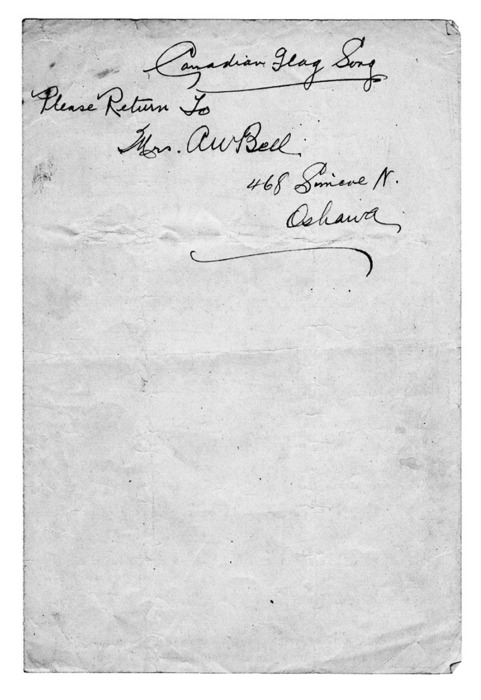 Canadian Flag Song
Please Return To
Mrs. A W Bell
468 Simcoe N.
Oshawa